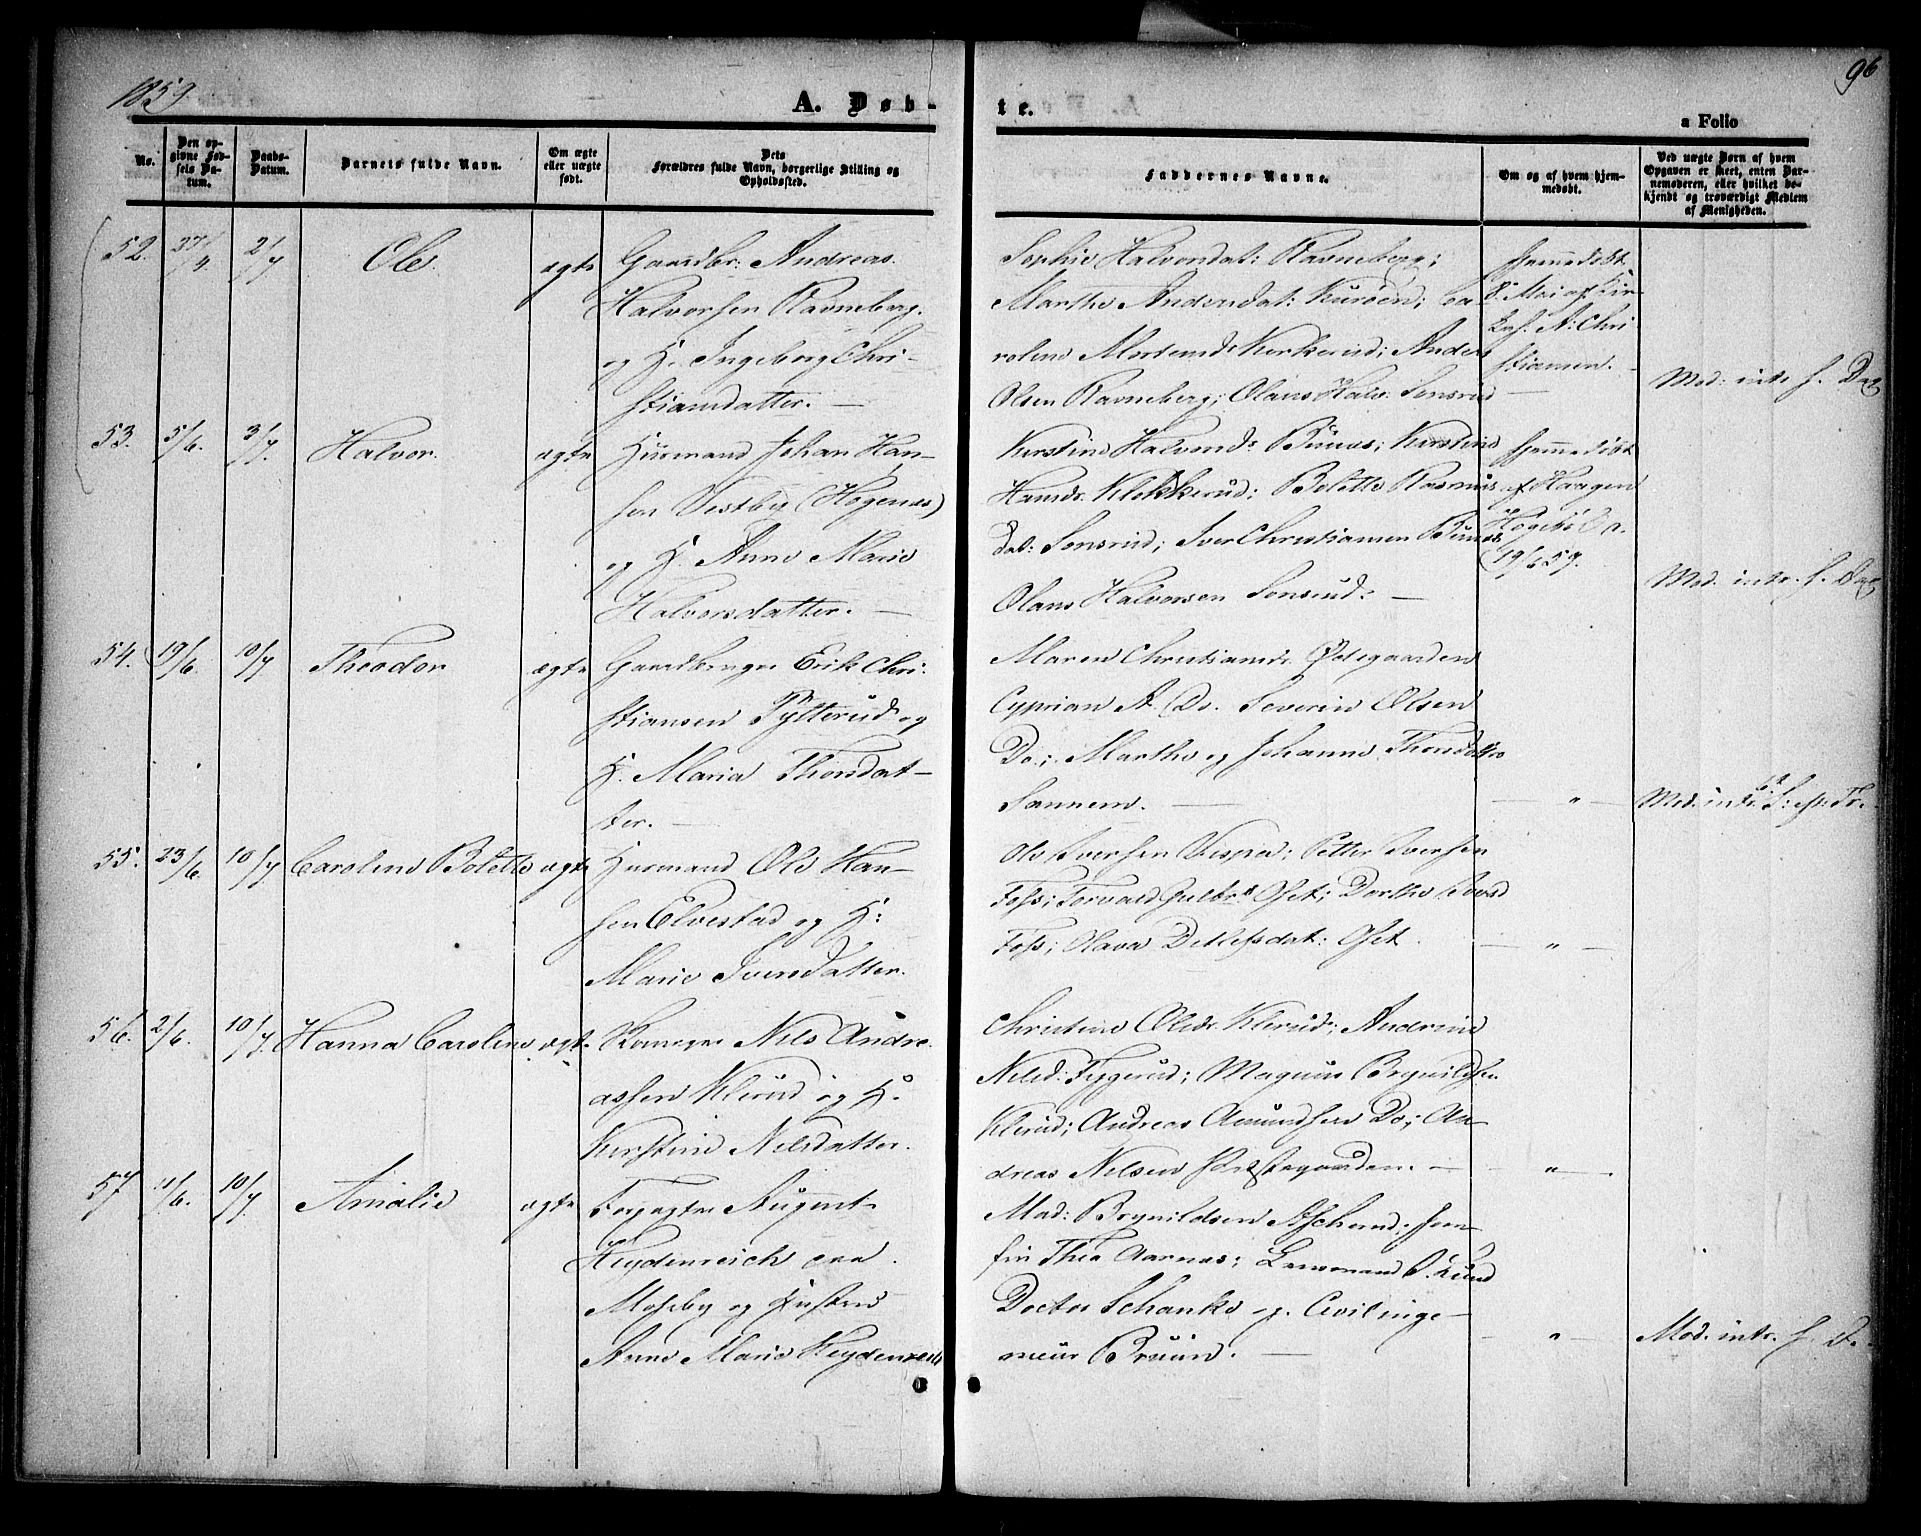 1859
96
A. Døb-
te.
a Folio
No.
Den op-
givne Fød-
sels Da-
tum.
Daabs-
Datum.
Barnets fulde Navn.
Om ægte
eller uægte
født.
Dets
Forældres fulde Navn, borgerlige Stilling og
Opholdssted.
Faddernes Navne.
Om og af hvem hjem-
medøbt.
Ved uægte Børn af hvem
Opgaven er skeet, enten Bar-
nemoderen, eller hvilket be-
kjendt og troværdigt Medlem
af Menigheden.
52. 27/4 2/7 Ole ægte Gaardbr: Andreas
Halvorsen Ravneberg
og H. Ingeborg Chri-
stiansdatter. —
Sophie Halvorsdat: Ravneberg;
Marthe Andersdat: Kursen; Ca-
roline Mortensdr Kerkerud; Anders
Olsen Ravneberg; Olaus Halv. Sonsrud
Hjemmedøbt
8. Mai af Kir-
A: Chri
stiansen. —
Med: intr. f. D
53. 5/6. 3/7. Halvor. ægte Husmand Johan Han-
sen Vestby (Hogenæs)
og H. Anne Marie
Halvorsdatter. —
Kirstine Halvorsdr Bunæs; Kirstine
Hansdr. Klekkerud; Bolette Rasmus-
dat: Sonsrud; Iver Christiansen Bunæs
Olaus Halvorsen Sonsrud. —
Hjemmedøbt
af Haagen
19/6 59.
Med. intr. f. D
54. 19/6. 10/7 Theodor ægte Gaardbruger Erik Chri-
stiansen Tytterud og
H. Maria Thorsdat-
ter. —
Maren Christiansdr. Ødegaarden
Cyprian A. Do. Severin Olsen
Do.; Marthe og Johanne Thorsdatre
Sannem. —
— " —
Med. intr.
55. 23/6. 10/7 Caroline Bolette ægte Husmand Ole Han-
sen Elvestad og H:
Marie Iversdatter.
Ole Iversen Visped; Petter Iversen
Foss; Torvald Gulbr. Oset; Dorthe Iversd
Foss; Olava Detlefsdat: Oset.
— " —
56. 2/6. 10/7. Hanna Caroline ægt. Nils Andre-
assen Klerud og H.
Kirstine Nilsdatter.
Christine Olsdr. Klerud; Andrine
Nilsd: Fygerud; Magnus Brynildsen
Klerud; Andreas Amundsen Do; An-
dreas Nilsen Præstegaarden. —
— " —
57 11/6. 10/7. Amalie ægte Forpagter August
Heydenreich paa
Moseby og Hustru
Anne Marie Heydenreich
Mad: Brynildsen Askerud; Jom-
fru Thea Aarnæs; Lensmand O. Lund
Doctor Schanke og Civilinge-
nieur Bruun. —
— " —
Mod. intr. f. D.